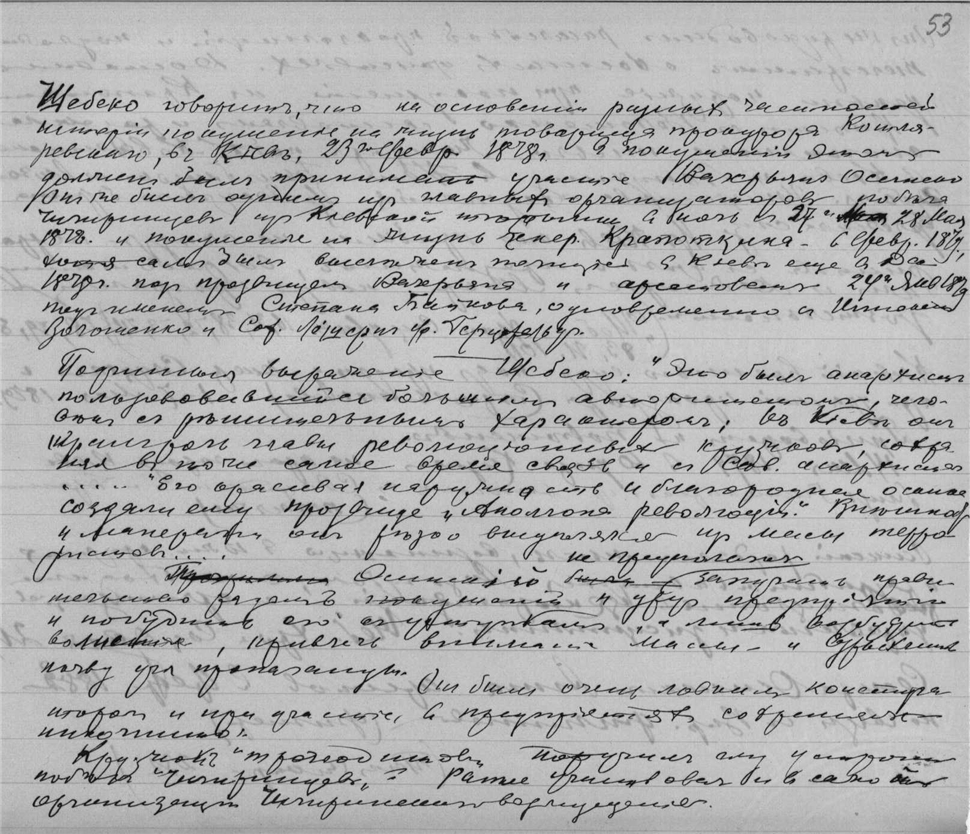 53
Щебеко говоритъ, что на основаніи разныхъ частностей
исторіи покушенія на жизнь товарища прокурора Котля-
ревскаго, въ Кіевѣ, 23го февр. 1878г. въ покушеніи этомъ
долженъ былъ принимать участіе Валерьянъ Осинскій
былъ однимъ изъ главныхъ организаторовъ побѣга
Чигиринцевъ изъ Кіевской тюрьмы въ ночь съ 27го 28 Мая
1878г. и покушенія на жизнь генер. Крапоткина въ февр. 1879,
хотя самъ былъ еще въ
1878г. подъ прозвищемъ Валерьяна и арестованъ 24го Янв 1879
подъ именемъ Степана Бойкова, одновременно съ
Волошенко и Соф. Лешернъ ф. Герцфельдъ.
Подлинныя выраженія Щебеко: "Это былъ анархистъ
пользовавшійся большимъ авторитетомъ, чело-
вѣкъ съ рѣшительнымъ характеромъ; въ Кіевѣ онъ
игралъ роль главы революціонныхъ кружковъ, сохра-
няя въ то же самое время связь и съ Сѣв. анархистами
..... "Его красивая наружность и благородная осанка
создали ему прозвище "Аполлона революціи".
и манерами онъ рѣзко выдѣлялся изъ массы терро
ристовъ....
не предполагалъ
Осинскій запугать прави
тельство рядомъ покушеній и предпріятій
и побудить его къ уступкамъ, а лишь возбудить
волненія, привлечь вниманіе массы и
почву для пропаганды.
Онъ былъ очень ловкимъ конспира
торомъ и при участіи въ предпріятіяхъ
Кружокъ "троглодитовъ" поручилъ ему устроить
побѣгъ "Чигиринцевъ". Ранѣе участвовалъ и въ самой
организаціи Чигиринскаго возмущенія.